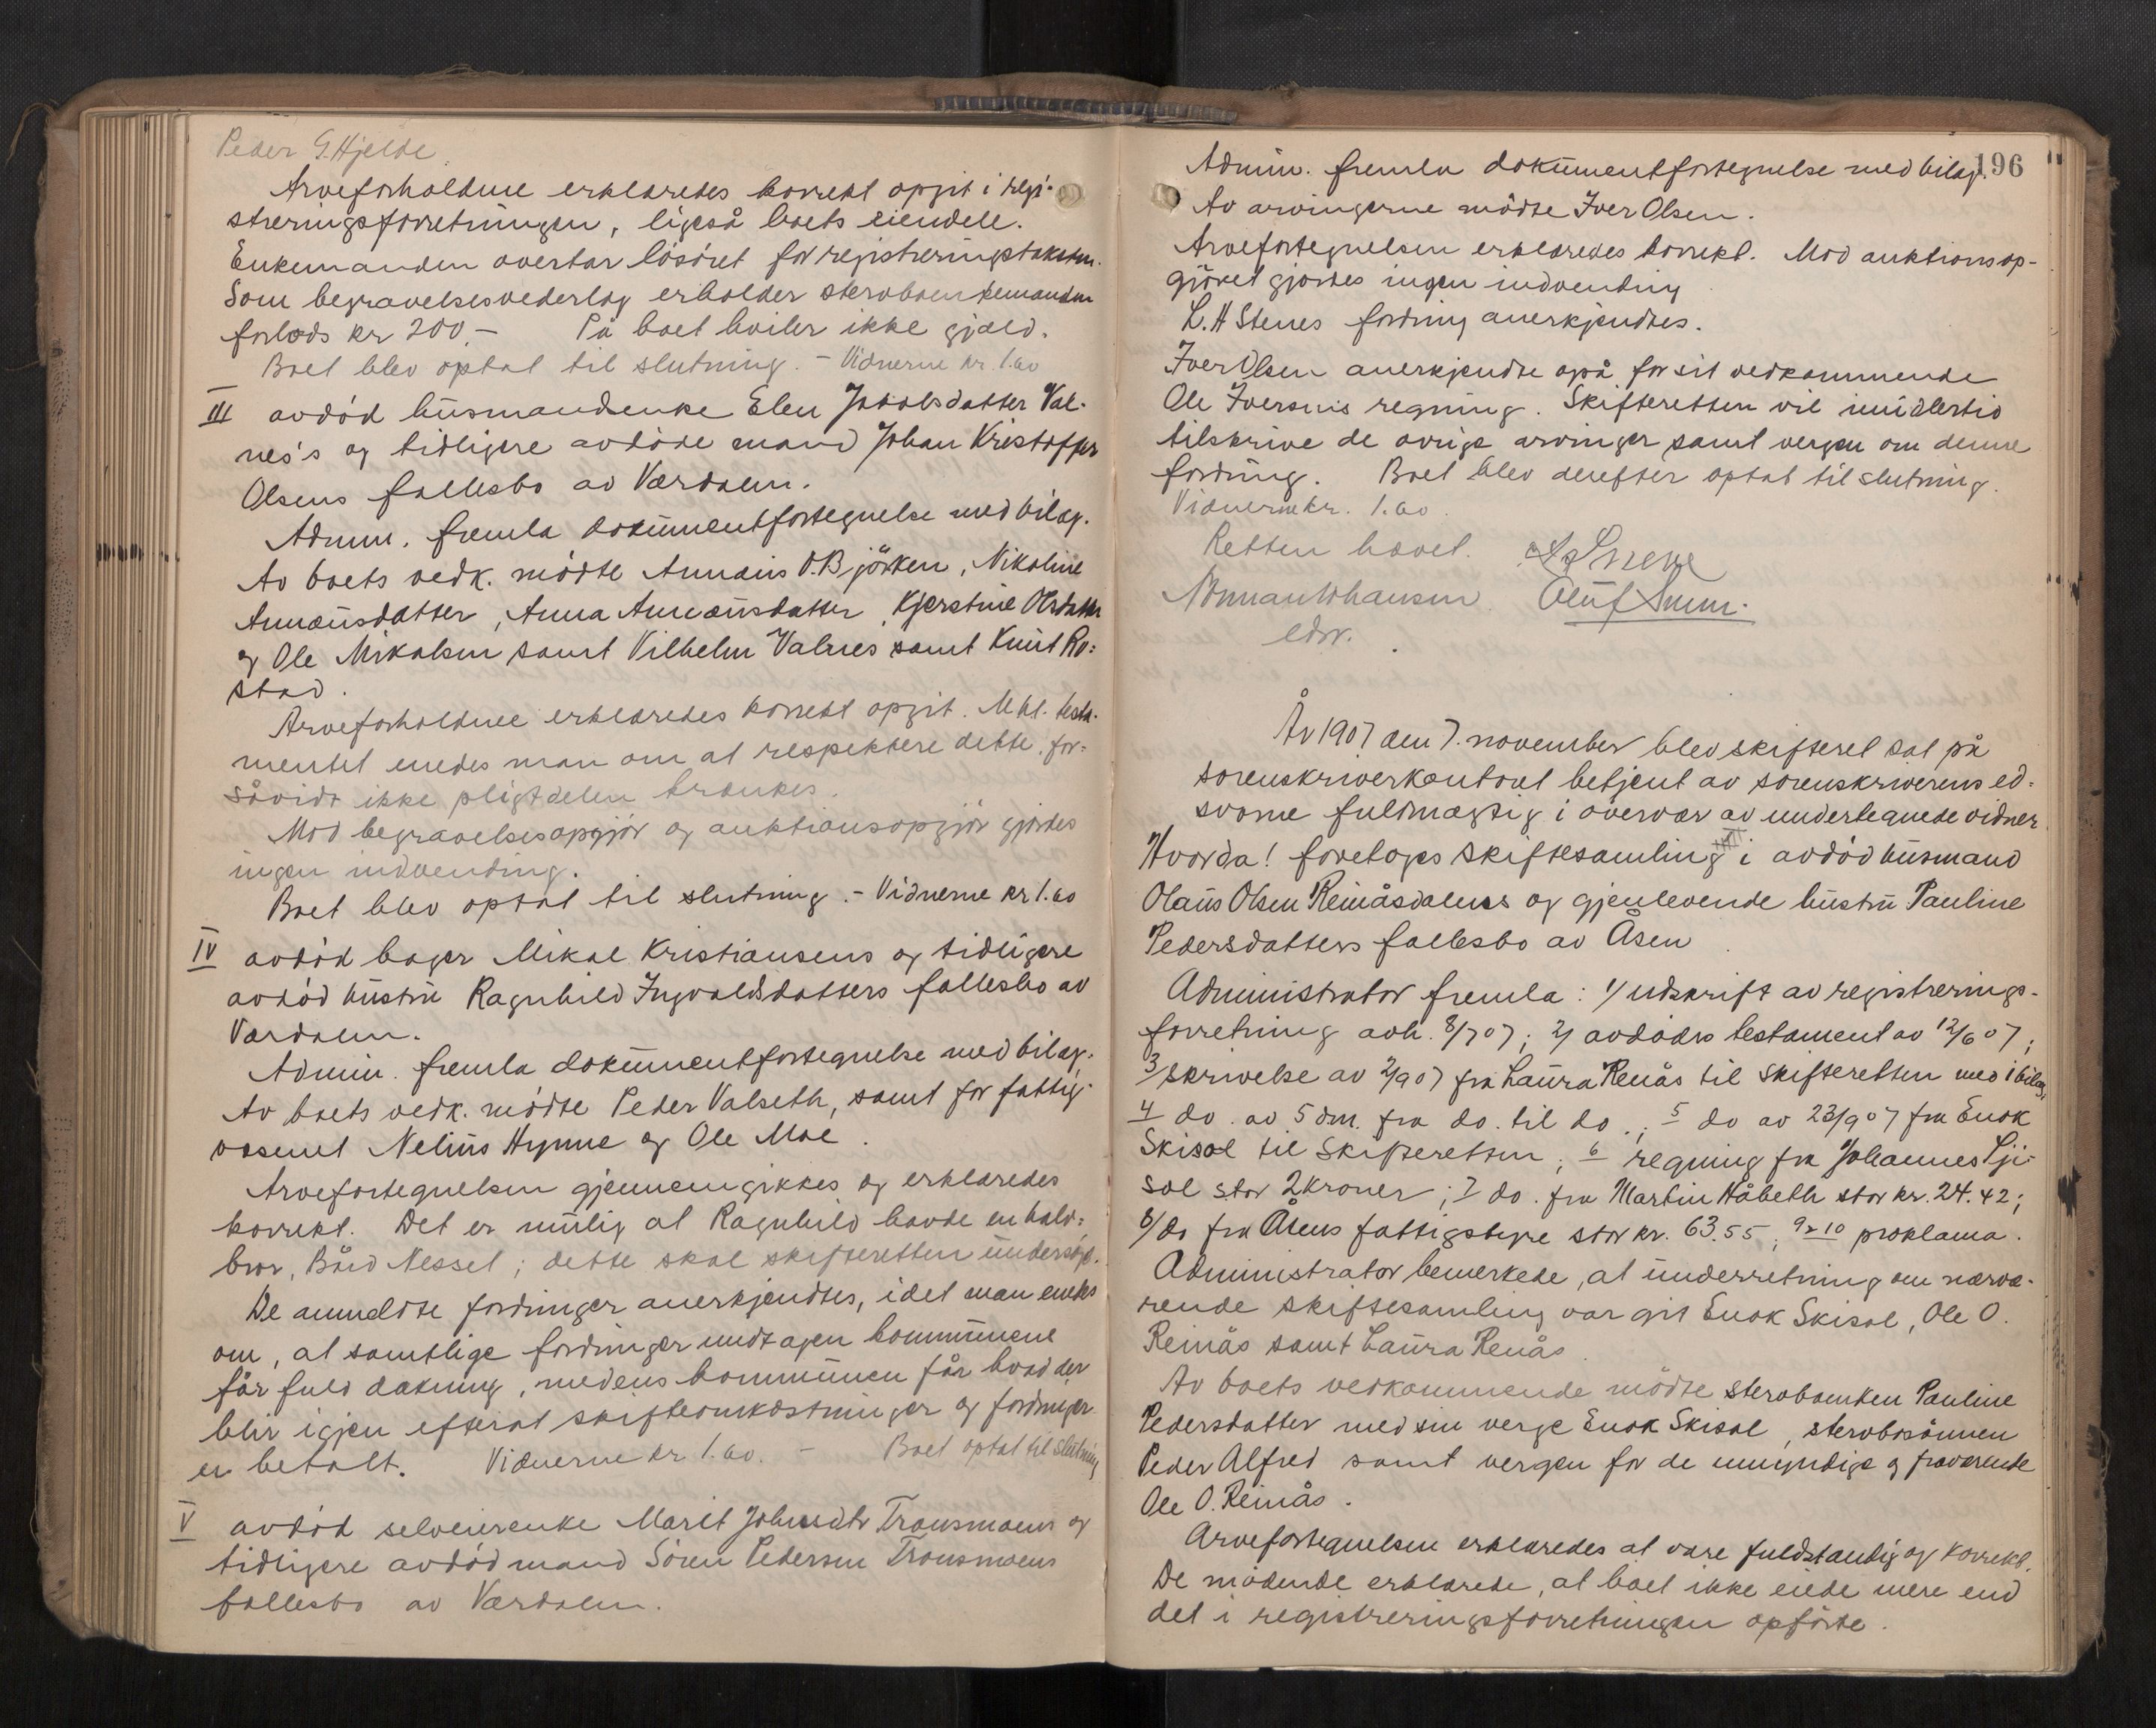 Peder G. Hjelde
Arveforholdene erklæredes korrekt opgit i regi-
streringsforretningen, ligeså boets eiendele.
Enkemanden overtar lösöret for registreringstaksten.
Som begravelsesvederlag erholder stervboenkemanden
forlods kr 200,- På boet hviler ikke gjæld.
Boet blev optat til slutning. - Vidnerne kr. 1.60
III avdöd husmandsenke Elen Jakobsdatter Val-
nes's og tidligere avdöde mand Johan Kristoffer
Olsens fællesbo av Værdalen.
Admin. fremla dokumentfortegnelse med bilag.
Av boets vedk. mödte Annæus O. Bjørken, Nikoline
Annæusdatter, Anna Annæusdatter, Kjerstine Olsdatter
og Ole Mikalsen samt Vilhelm Valnes samt Knut Ro-
stad.
Arveforholdene erklæredes korrekt opgit. Mht. testa-
mentet enedes man om at respektere dette, for-
såvidt ikke pligtdelen krænkes.
Mod begravelsesopgjör og auktionsopgjör gjordes
ingen indvending.
Boet blev optat til slutning. - Vidnerne kr 1.60
IV avdöd bager Mikal Kristiansens og tidligere
avdöd hustru Ragnhild Ingvaldsdatters fællesbo av
Værdalen.
Admin. fremla dokumentfortegnelse med bilag.
Av boets vedk. mödte Peder Valseth, samt for fattig-
væsenet Nelius Hynne og Ole Moe.
Arvefortegnelsen gjennemgikkes og erklæredes
korrekt. Det er mulig at Ragnhild havde en halv-
bror, Bård Nessel; dette skal skifteretten undersöge.
De anmeldte fordringer anerkjendtes, idet man enedes
om, at samtlige fordringer undtagen kommunene
får fuld dækning, medens kommunen får hvad der
blir igjen efterat skifteomkostninger og fordringer
er betalt. Vidnerne kr 1.60. - Boet optat til slutning
V avdöd selveierenke Marit Johnsdtr Tronsmoens og
tidligere avdöd mand Sören Pedersen Tronsmoens
fællesbo av Værdalen.
196
Admin. fremla dokumentfortegnelse med bilag.
Av arvingerne mödte Iver Olsen.
Arvefortegnelsen erklæredes korrekt. Mod auktionsop-
gjöret gjordes ingen indvending
L. H Stenes fordring anerkjendtes.
Iver Olsen anerkjendte også for sit vedkommende
Ole Iversens regning. Skifteretten vil imidlertid
tilskrive de övrige arvinger samt vergen om denne
fordring. Boet blev derefter optat til slutning.
Vidnerne kr. 1.60.
Retten hævet.
edsv.
År 1907 den 7. november blev skifteret sat på
sorenskriverkontoret betjent av sorenskriverens ed-
svorne fuldmægtig i overvær av undertegnede vidner
Hvorda! foretoges skiftesamling i avdöd husmand
Olaus Olsen Reinåsdalens og gjenlevende hustru Pauline
Pedersdatters fællesbo av Åsen.
Administrator fremla: 1/ utskrift av registrerings-
forretning avh. 8/7 07; 2/ avdödes testament av 12/6 07;
3/ skrivelse av 2/9 07 fra Laura Renås til skifteretten med 1 bilag,
4 do. av 5 dm. fra do. til do.; 5 do av 23/9 07 fra Enok
Skisol til Skifteretten; 6 regning fra Johannes
sol stor 2 kroner; 7 do. fra Martin Håbeth stor kr. 24.42;
8/ do fra Åsens fattigstyre stor kr. 63.55; 9 & 10 proklama.
Administrator bemerkede, at underretning om nærvæ-
rende skiftesamling var git Enok Skisol, Ole O.
Reinås samt Laura Renås.
Av boets vedkommende mödte stervboenken Pauline
Pedersdatter med sin verge Enok Skisol, stervbosönnen
Peder Alfred samt vergen for de umyndige og fraværende
Ole O. Reinås.
Arvefortegnelsen erklæredes at være fuldstændig og korrekt.
De mödende erklærede, at boet ikke eiede mere end
det i registreringsforretningen opförte.